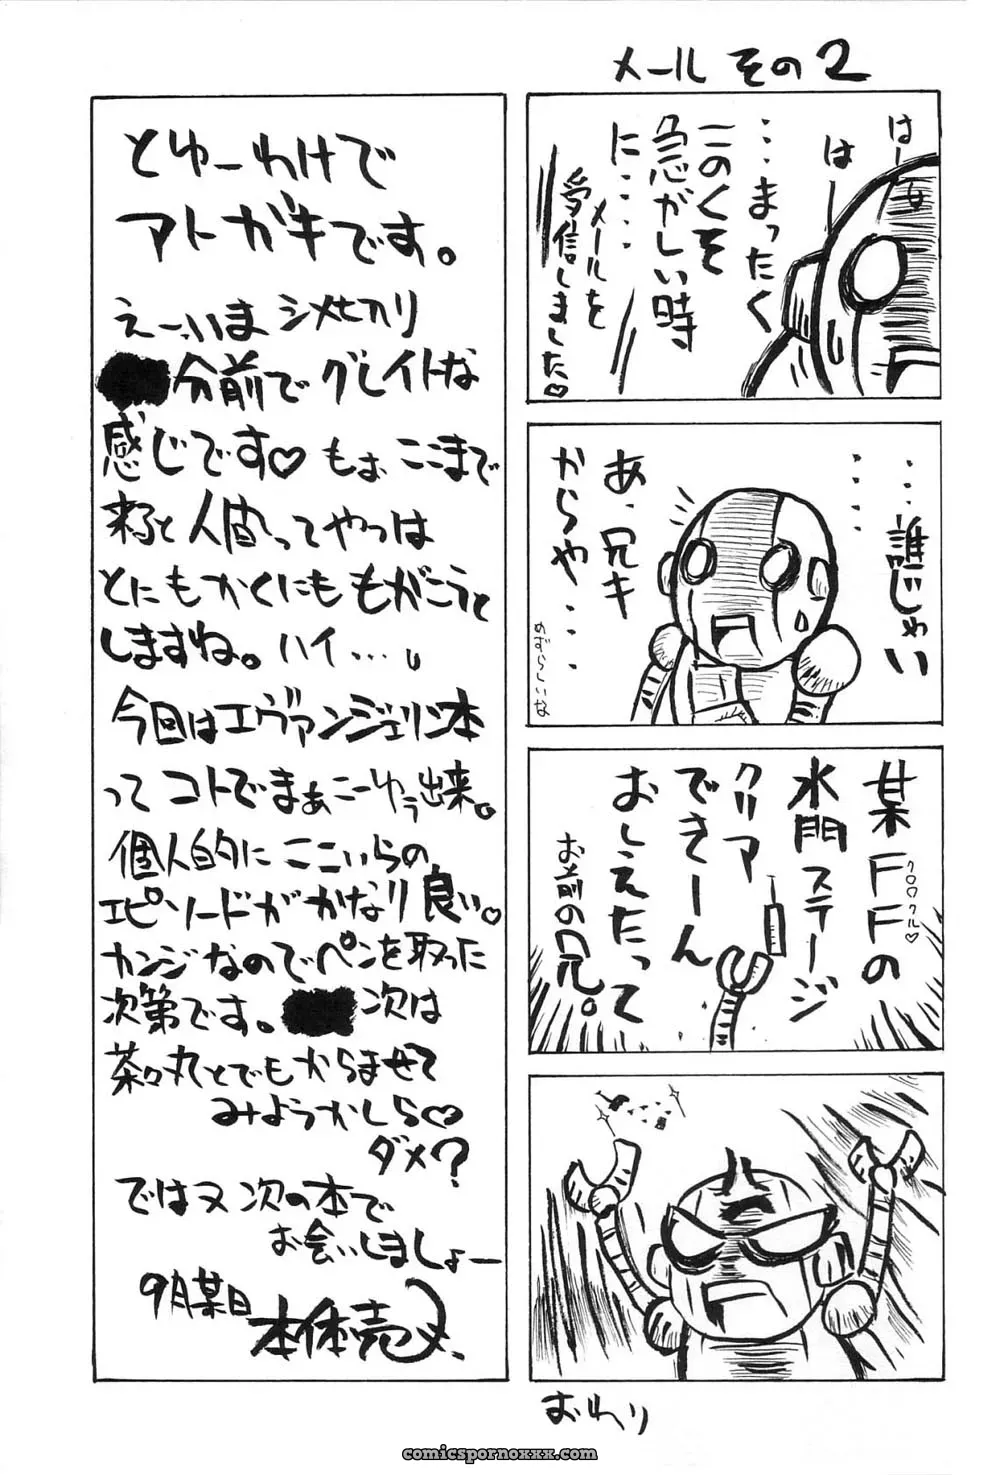 メール その2
はー
はー
…まったく
このくそ
急がしい時
に‥‥
メールを
受信しました♡
‥‥誰じゃい
‥‥
あ、兄キ
からや‥‥
めずらしいな
某FFの
クロワクル♡
水門ステージ
クリア
できーん
おしえたって
お前の兄。
おわり
とゆーわけで
アトガキです。
えーいま シメセカリ
分前で グレイトな
感じです♡ もぉ ここまで
来ると 人間ってやつは
とにもかくにも もがこうと
しますね。ハイ…。
今回はエヴァンジェリン本
って コトでまぁこーゆう出来。
個人的に ここいらの
エピソードが かなり 良い。
カンジなのでペンを取った
次第です。 次は
茶々丸とでもからませて
みようかしら♡
ダメ?
ではヌ 次の本で
お会いしましょー
9月某日
本体売
comicspornoxxx.com